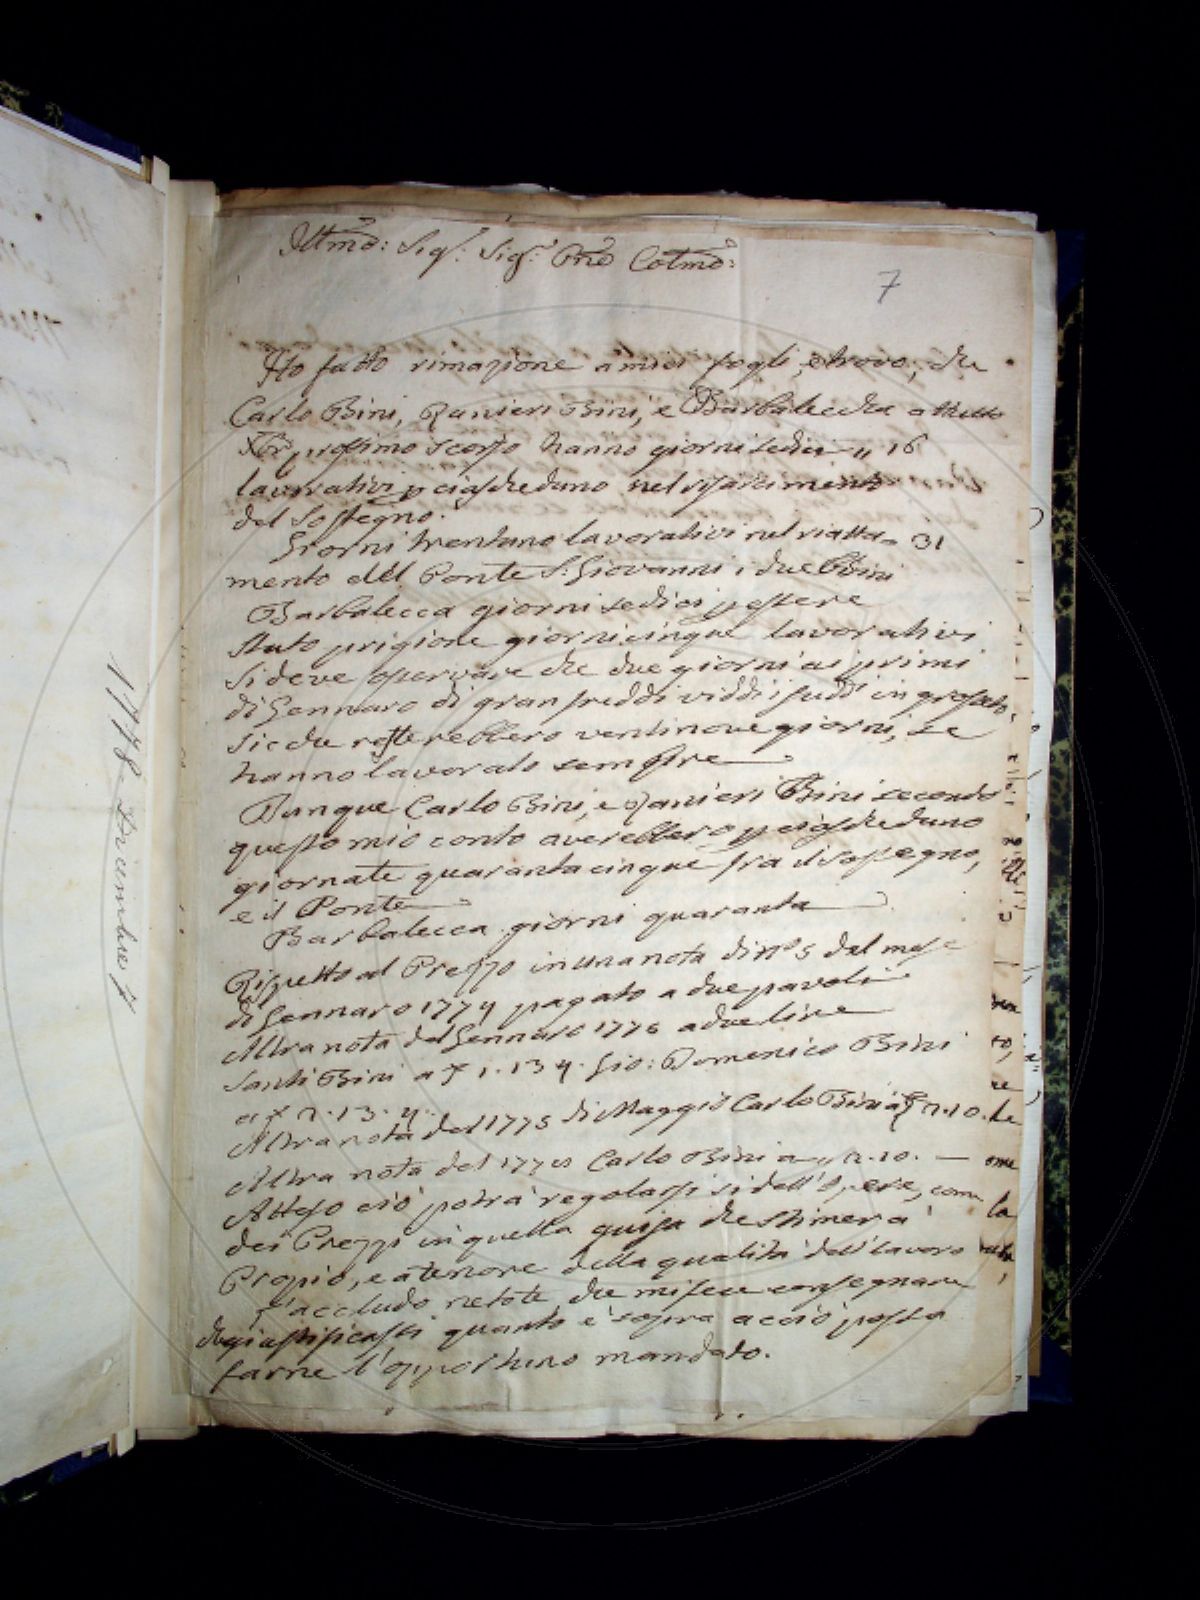 Illmo: Sigr: Sigr: Prne Colmo:
7
Ho fatto rimazione a miei fogli, e trovo, che
Carlo Bini, Ranieri Bini, e Barbalecca a tutto
Xbr prossimo scorso hanno giorni sedici 16
lavorativi p ciascheduno nel risarcimento
del Sostegno.
Giorni trentuno lavorativi nel riatta= 31
mento del Ponte S. Giovanni i due Bini
Barbalecca giorni sedici p essere
stato prigione giorni cinque lavorativi
si deve osservare che due giorni ai primi
di Gennaro di gran freddi viddi i
Sicche resterebbero ventinove giorni, se
hanno lavorato sempre
Dunque Carlo Bini, e Ranieri Bini secondo
questo mio conto averebbero p ciascheduno
giornate quarantacinque fra il sostegno,
e il Ponte
Barbalecca giorni quaranta
Rispetto al Prezzo in una nota di no 5 del mese
di Gennaro 1774 pagato a due pavoli
Altra nota del Gennaro 1775 a due lire
Santi Bini a 1.13.4. Gio: Domenico Bini
a 2.13.4.
Altra nota del 1775 di Maggio Carlo Bini a 2.10.
Altra nota del Carlo Bini a 2.10. —
Atteso ciò potrà regolarsi sì dell'Opere, come
dei Prezzi in quella guisa che stimerà
Propio, e a tenore della qualità del lavoro
L'accludo ne che mi fece consegnare
quanto è sopra acciò possa
farne l'opportuno mandato.
1778 Dicembre 7